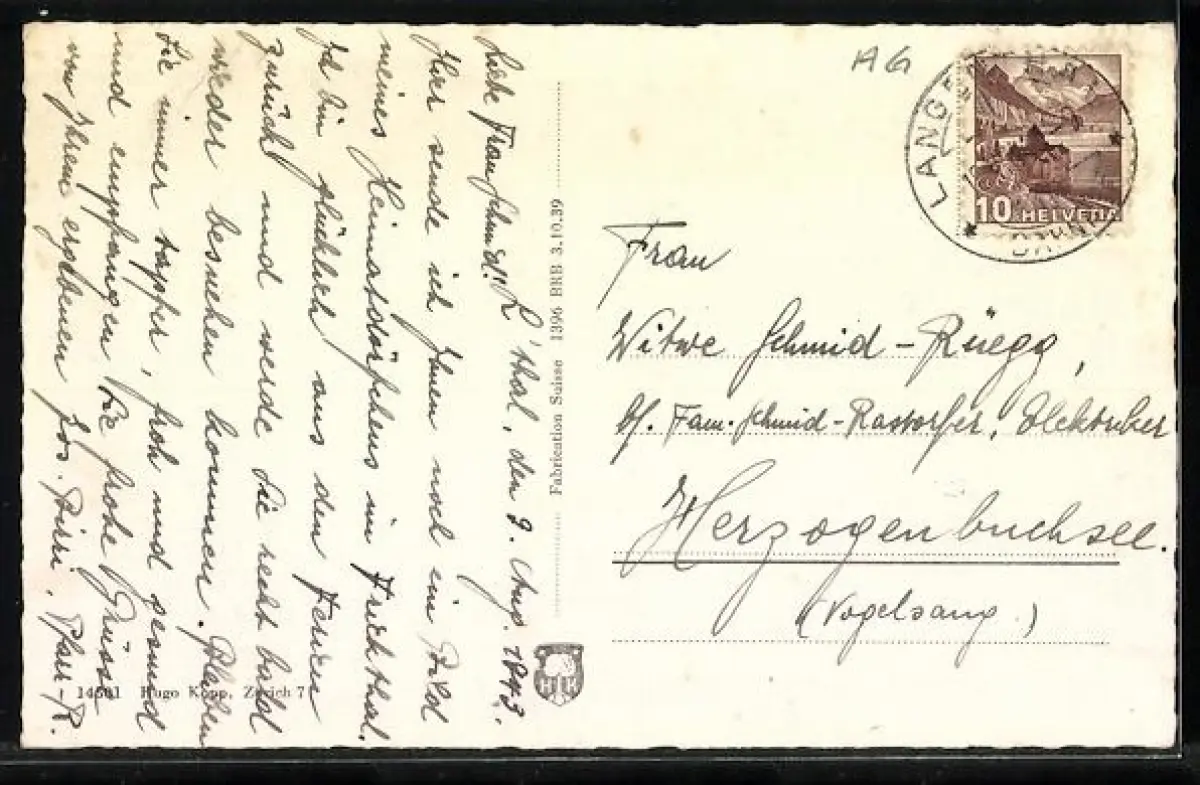 L'thal, den 9. Aug. 1943.
Liebe Frau Schmid!
Hier sende ich Ihnen noch ein Bild
meines Heimatdörfchens im Fricktal.
Ich bin glücklich aus den Ferien
zurück und werde Sie recht bald
wieder besuchen kommen. Bleiben
Sie immer tapfer, froh und gesund
und empfangen Sie frohe Grüsse
von Ihrem ergebenen Jos. Pfarr-R.
Fabrication Suisse 1396 BRB 3.10.39
14501 Hugo Kopp, Zürich 7
AG
LANG
10 HELVETIA
Frau
Witwe Schmid-Rüegg,
b/. Fam. Schmid-Rastorfer,
Herzogenbuchsee.
(Vogelsang.)